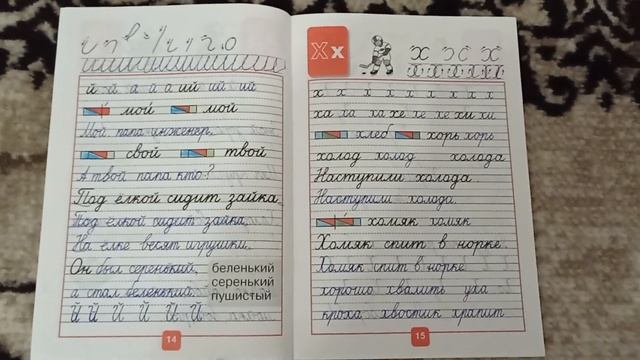 й й а й а й ий ий ий
мой мой
Мой папа инженер.
свой твой
А твой папа кто?
Под ёлкой сидит зайка.
Под ёлкой сидит зайка.
На елке весят игрушки.
Он был серенький,
а стал беленький.
беленький
серенький
пушистый
Й Й Й Й Й Й
14
Х х
х х х
х х х х х х х х
ха ха ха хе хе хе хи хи
хлеб хорь хорь
холод холод холода
Наступили холода.
Наступили холода.
хомяк хомяк
Хомяк спит в норке.
Хомяк спит в норке.
хорошо хвалить уха
кроха хвостик храпит
15